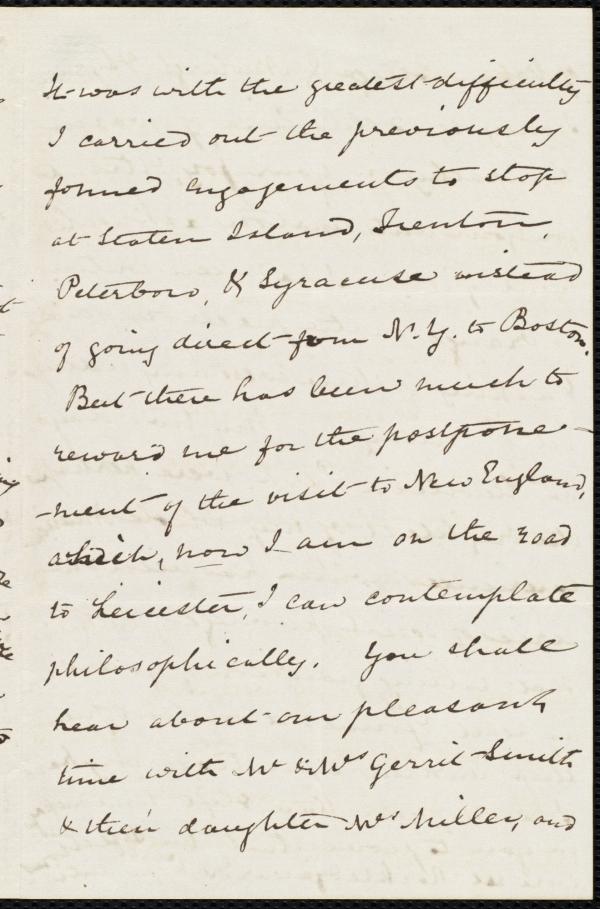 It was with the greatest difficulty
I carried out the previously
formed engagements to stop
at Staten Island, Trenton,
Peterboro, & Syracuse instead
of going direct from N.Y. to Boston.
But there has been much to
reward me for the postpone-
-ment of the visit to New England,
which, now I am on the road
to Leicester, I can contemplate
philosophically. You shall
hear about our pleasant
time with Mr & Mrs Gerrit Smith
& their daughter Mrs Miller, and